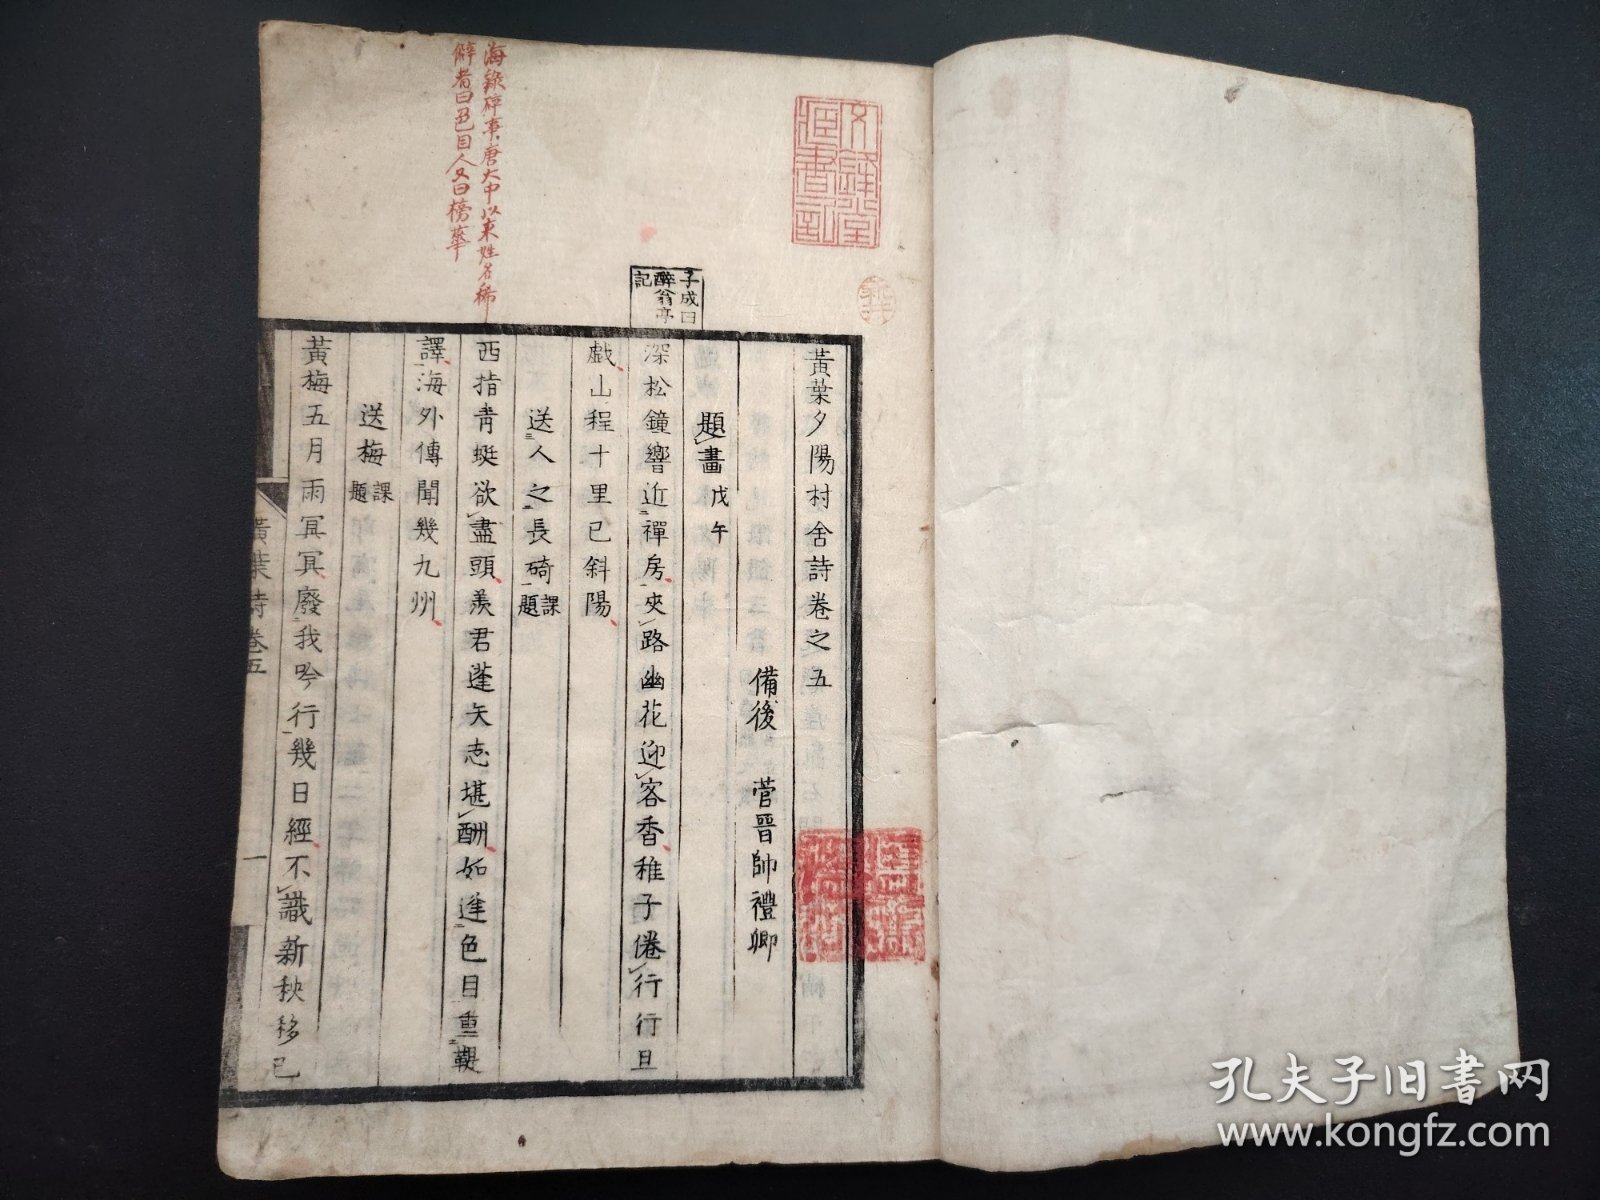 黃葉夕陽村舍詩卷之五
備後 菅晉帥禮卿
題畫 戊午
深松鐘響近禪房夾路幽花迎客香稚子倦行行且
戯山程十里已斜陽
送人之長碕 課題
西指青蜓欲盡頭羨君蓬矢志堪酬如逢色目重鞮
譯海外傳聞幾九州
送梅 課題
黃梅五月雨冥冥廢我吟行幾日經不識新秧移已
子成曰
醉翁亭
記
海錄碎事唐大中以來姓名稀
僻者曰色目人又曰榜華
黃葉詩卷五
一
孔夫子旧书网
www.kongfz.com